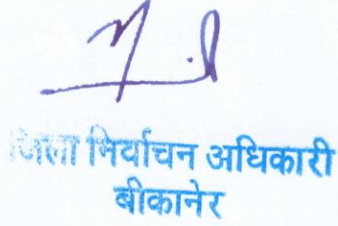 जिला निर्वाचन अधिकारी
बीकानेर